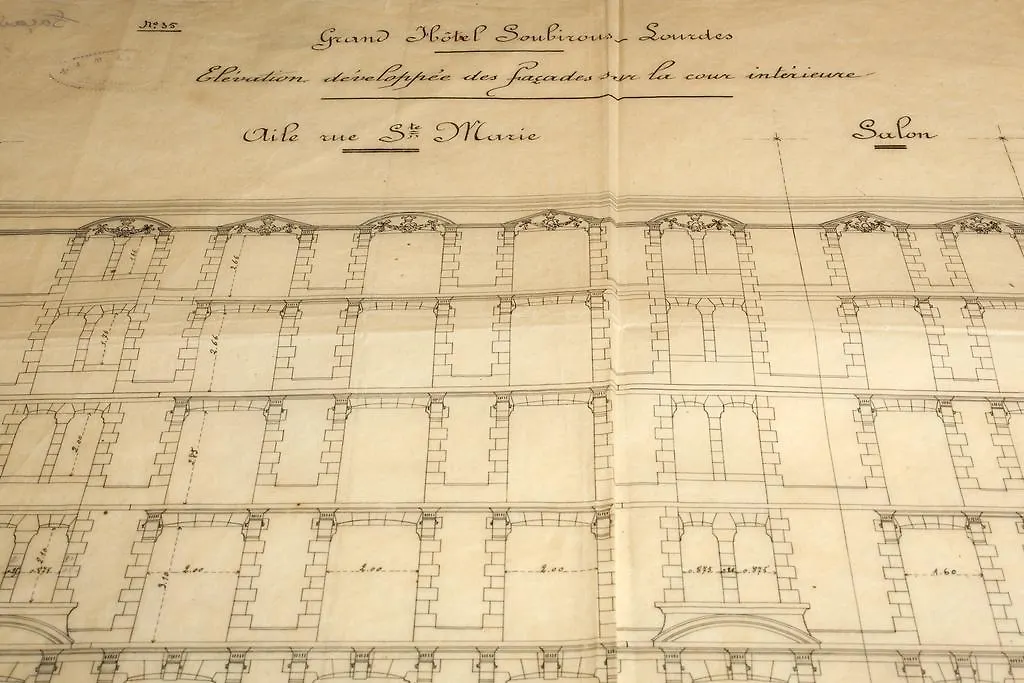 No 35
Grand Hôtel Soubirous - Lourdes
Elévation développée des façades sur la cour intérieure
Aile rue Ste Marie
Salon
2.66
2.66
2.00
2.85
2.10
3.10
2.00
2.00
2.00
0.875
0.875
1.60
0.875